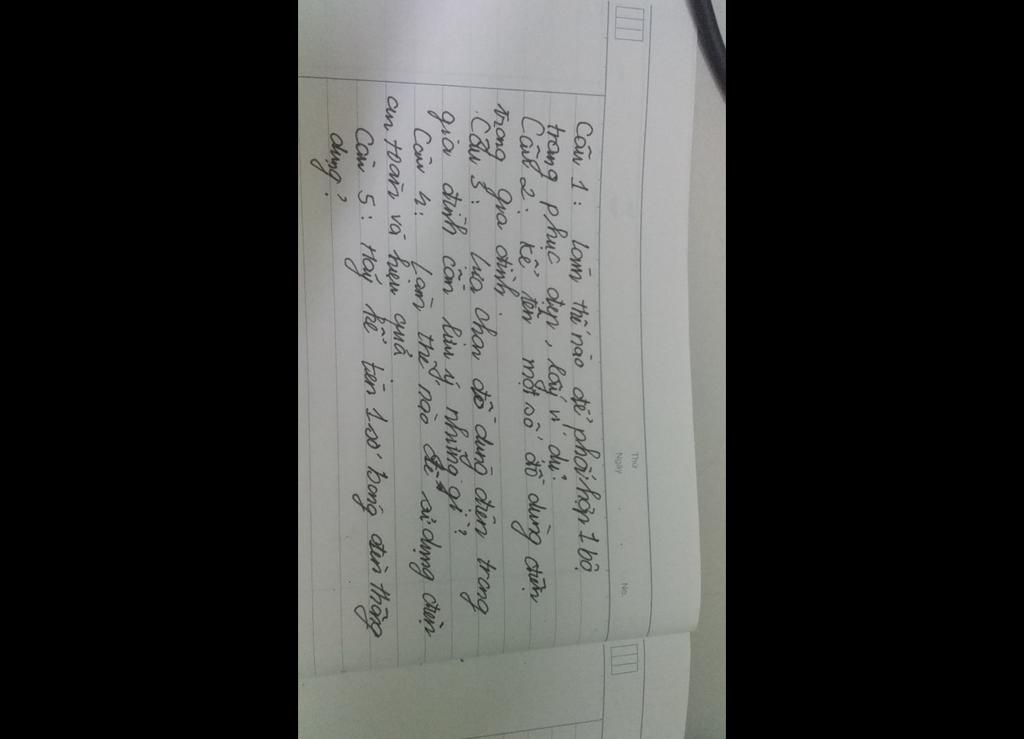 Thứ
Ngày
No.
Câu 1: Làm thế nào để phối hợp 1 bộ
trang phục đẹp, lấy ví dụ.
Câu 2: Kể tên một số đồ dùng điện
trong gia đình.
Câu 3: Lựa chọn đồ dùng điện trong
gia đình cần lưu ý những gì?
Câu 4: Làm thế nào để sử dụng điện
an toàn và hiệu quả
Câu 5: Hãy kể tên 1 số bóng đèn thông
dụng?